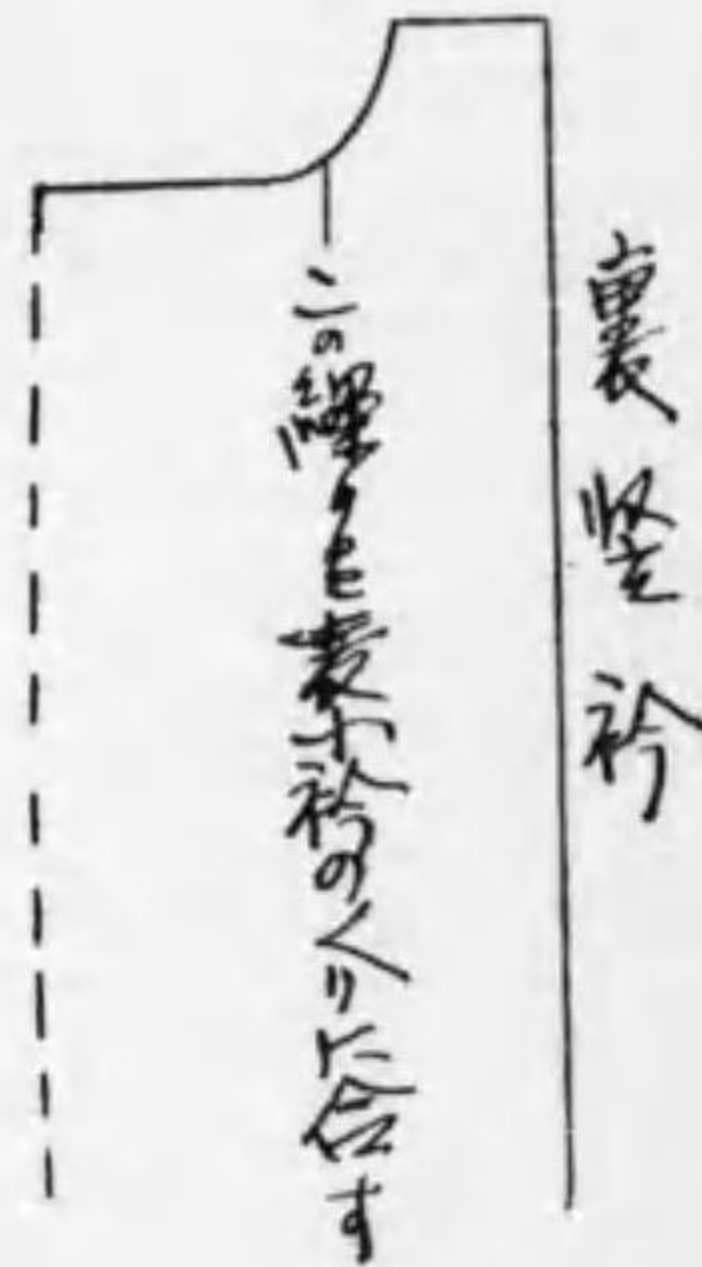 裏竪衿
この繰りを表小衿のくりに合す